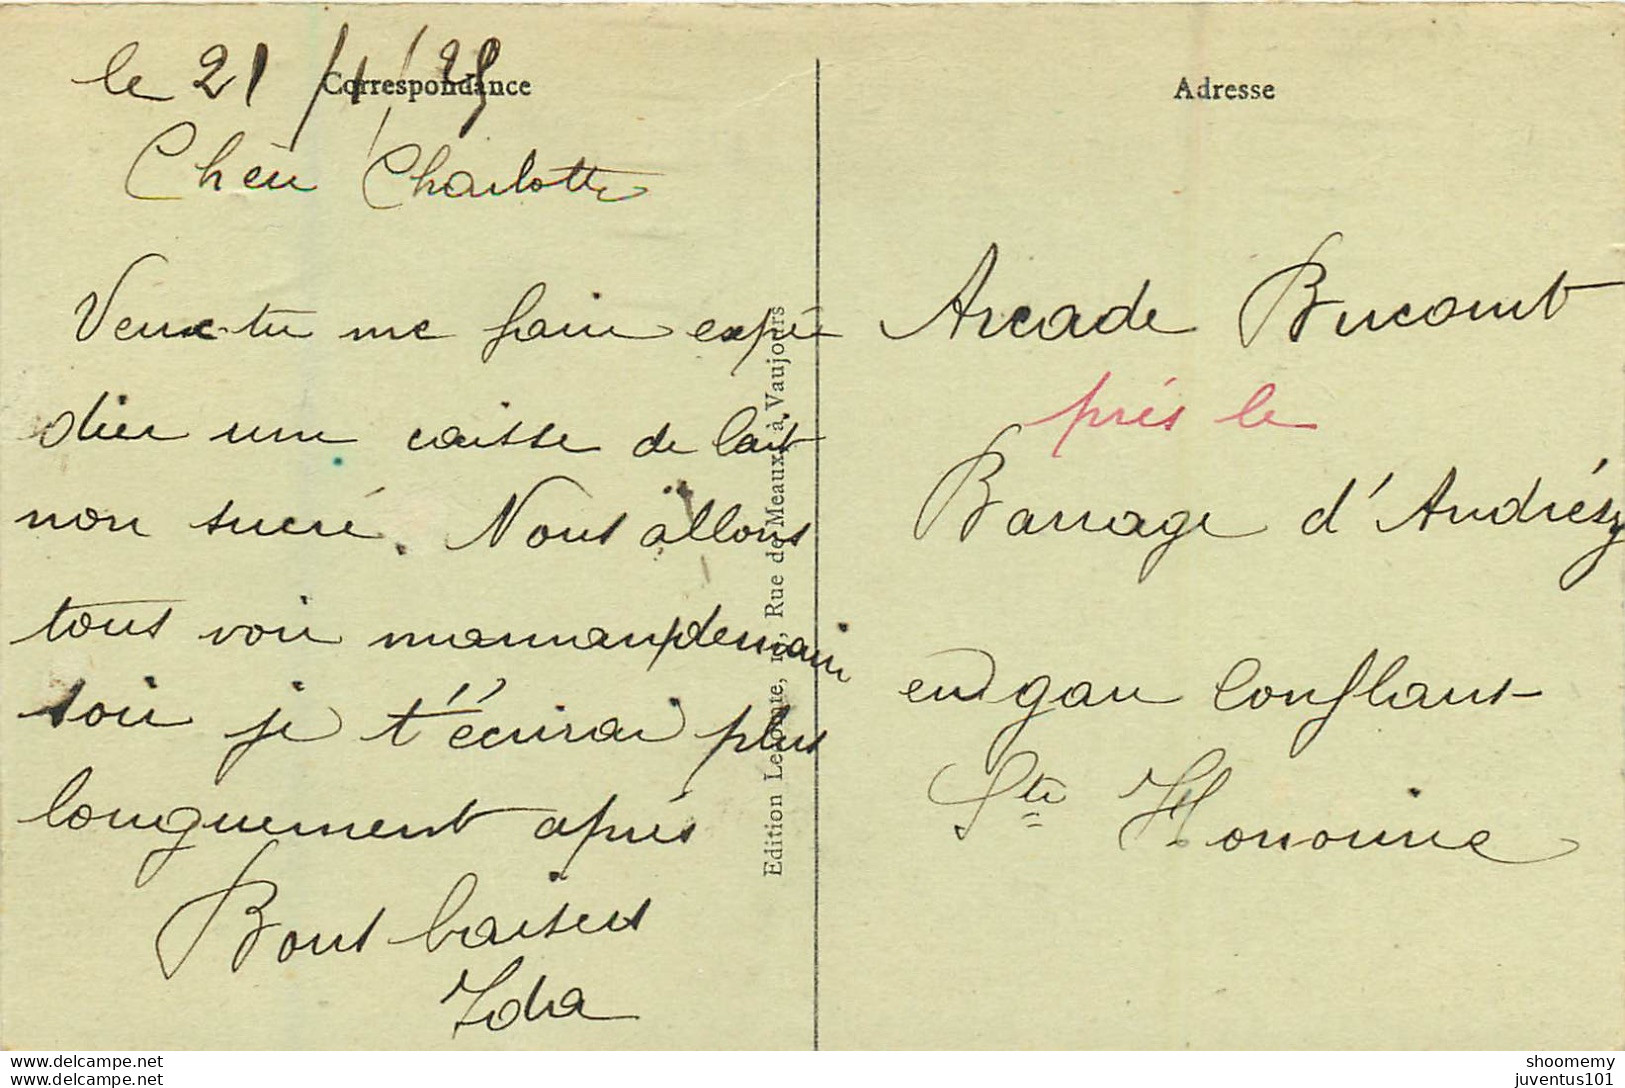 Correspondance
le 21/1/25
Chère Charlotte
Veux-tu me faire expé
dier une caisse de lait
non sucré. Nous allons
tous voir maman demain
soir je t'écrirai plus
longuement après
Bons baisers
Ida
Edition Rue de Meaux, à Vaujours
Adresse
Arcade
près le
Barrage d'Andrésy
gare Conflans-
Ste Honorine
delcampe.net
delcampe.net
shoomemy
juventus101